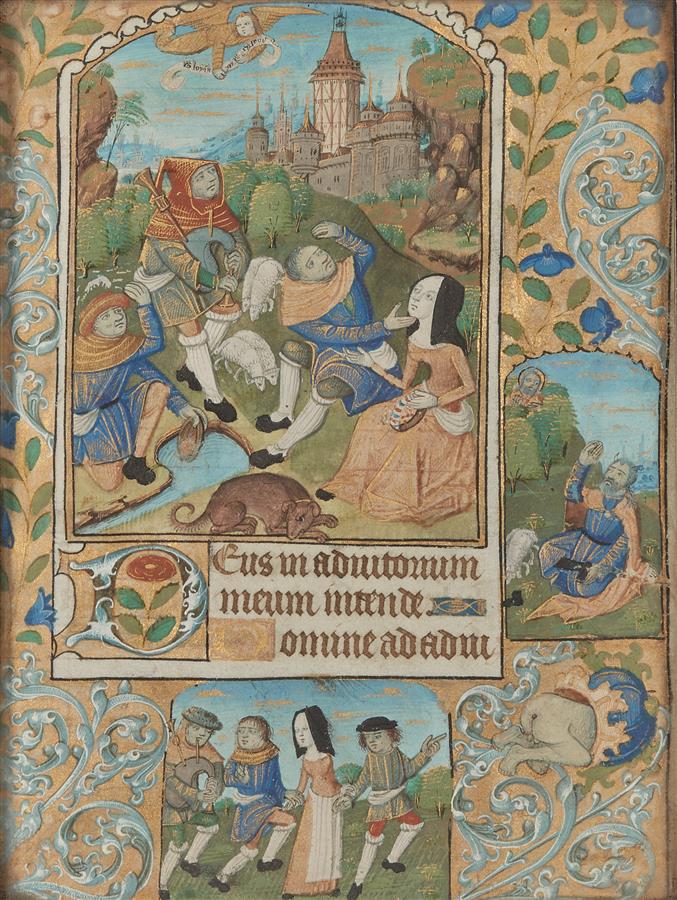 Gloria in excelsis d
Deus in adiutorium
meum intende
Domine ad adiu